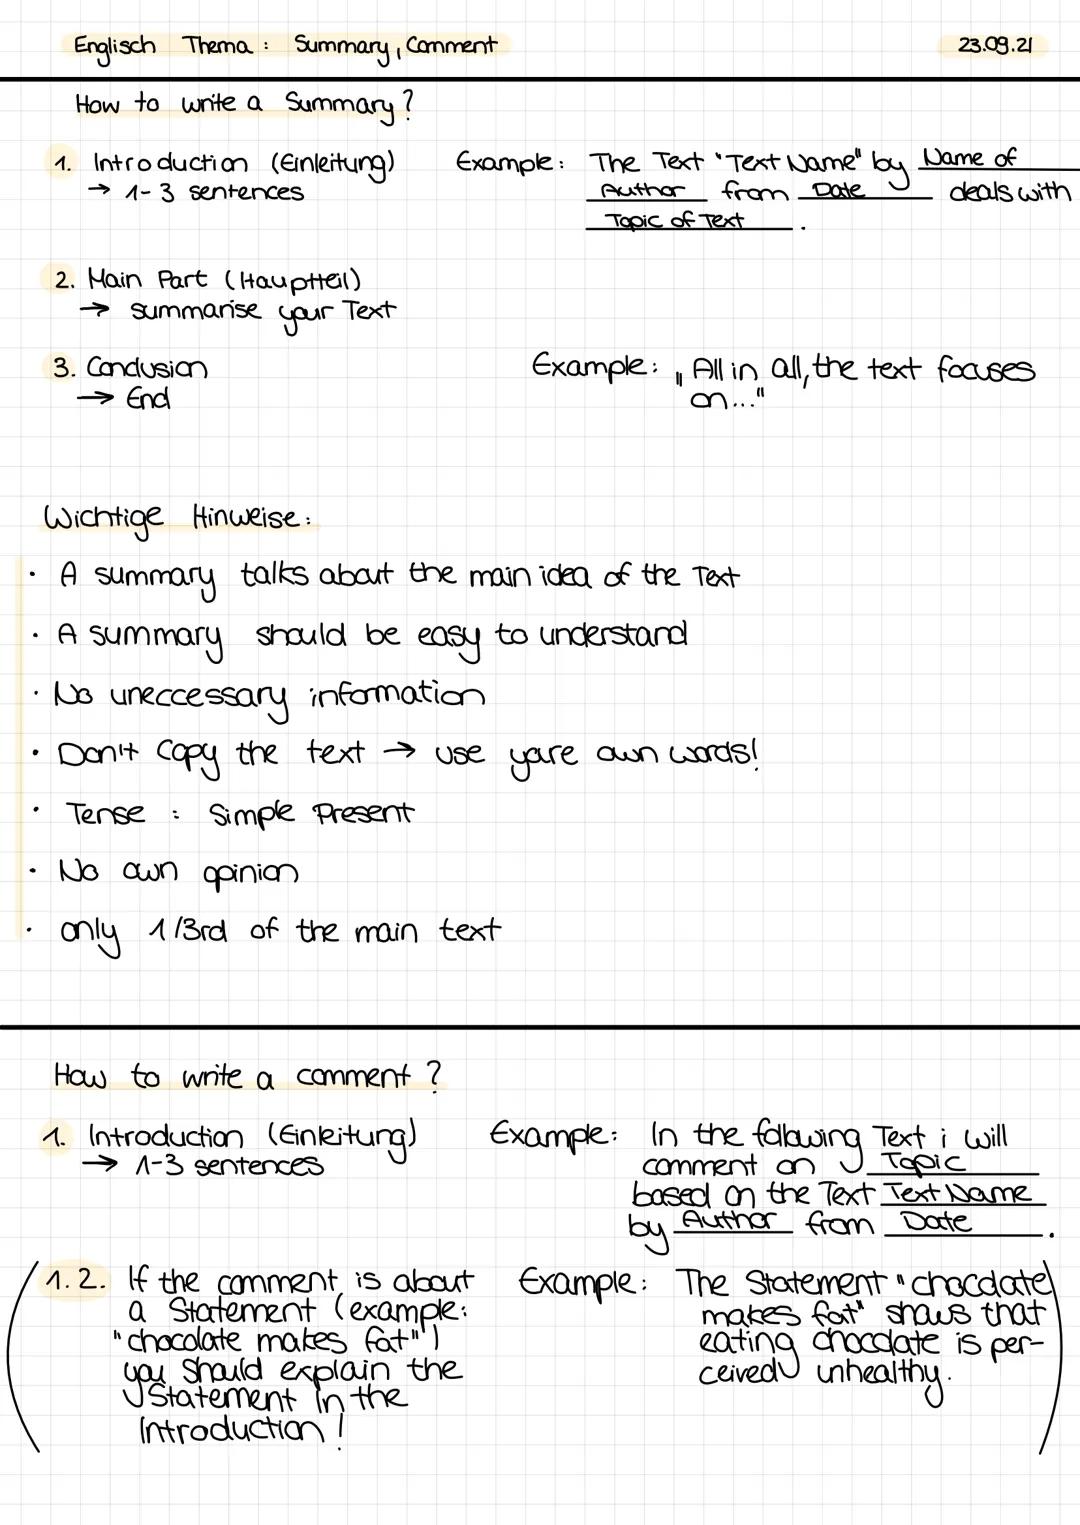 Englisch Thema: Summary, Comment 23.09.21
How to write a Summary?
1. Introduction (Einleitung) Example: The Text "Text Name" by Name of
→ 1-3 sentences Author from Date deals with
Topic of Text.
2. Main Part (Hauptteil)
→ summarise your Text
3. Conclusion Example: „All in all, the text focuses
→ End on..."
Wichtige Hinweise:
· A summary talks about the main idea of the Text
· A summary should be easy to understand
· No uneccessary information
· Don't copy the text → use youre own words!
· Tense: Simple Present
· No own opinion
· only 1/3rd of the main text
How to write a comment?
1. Introduction (Einleitung) Example: In the following Text i will
→ 1-3 sentences comment on Topic
based on the Text Text Name
by Author from Date.
1.2. If the comment is about Example: The Statement "chocolate
a Statement (example: makes fat" shows that
"chocolate makes fat") eating chocolate is per-
you should explain the ceived unhealthy.
Statement in the
Introduction!